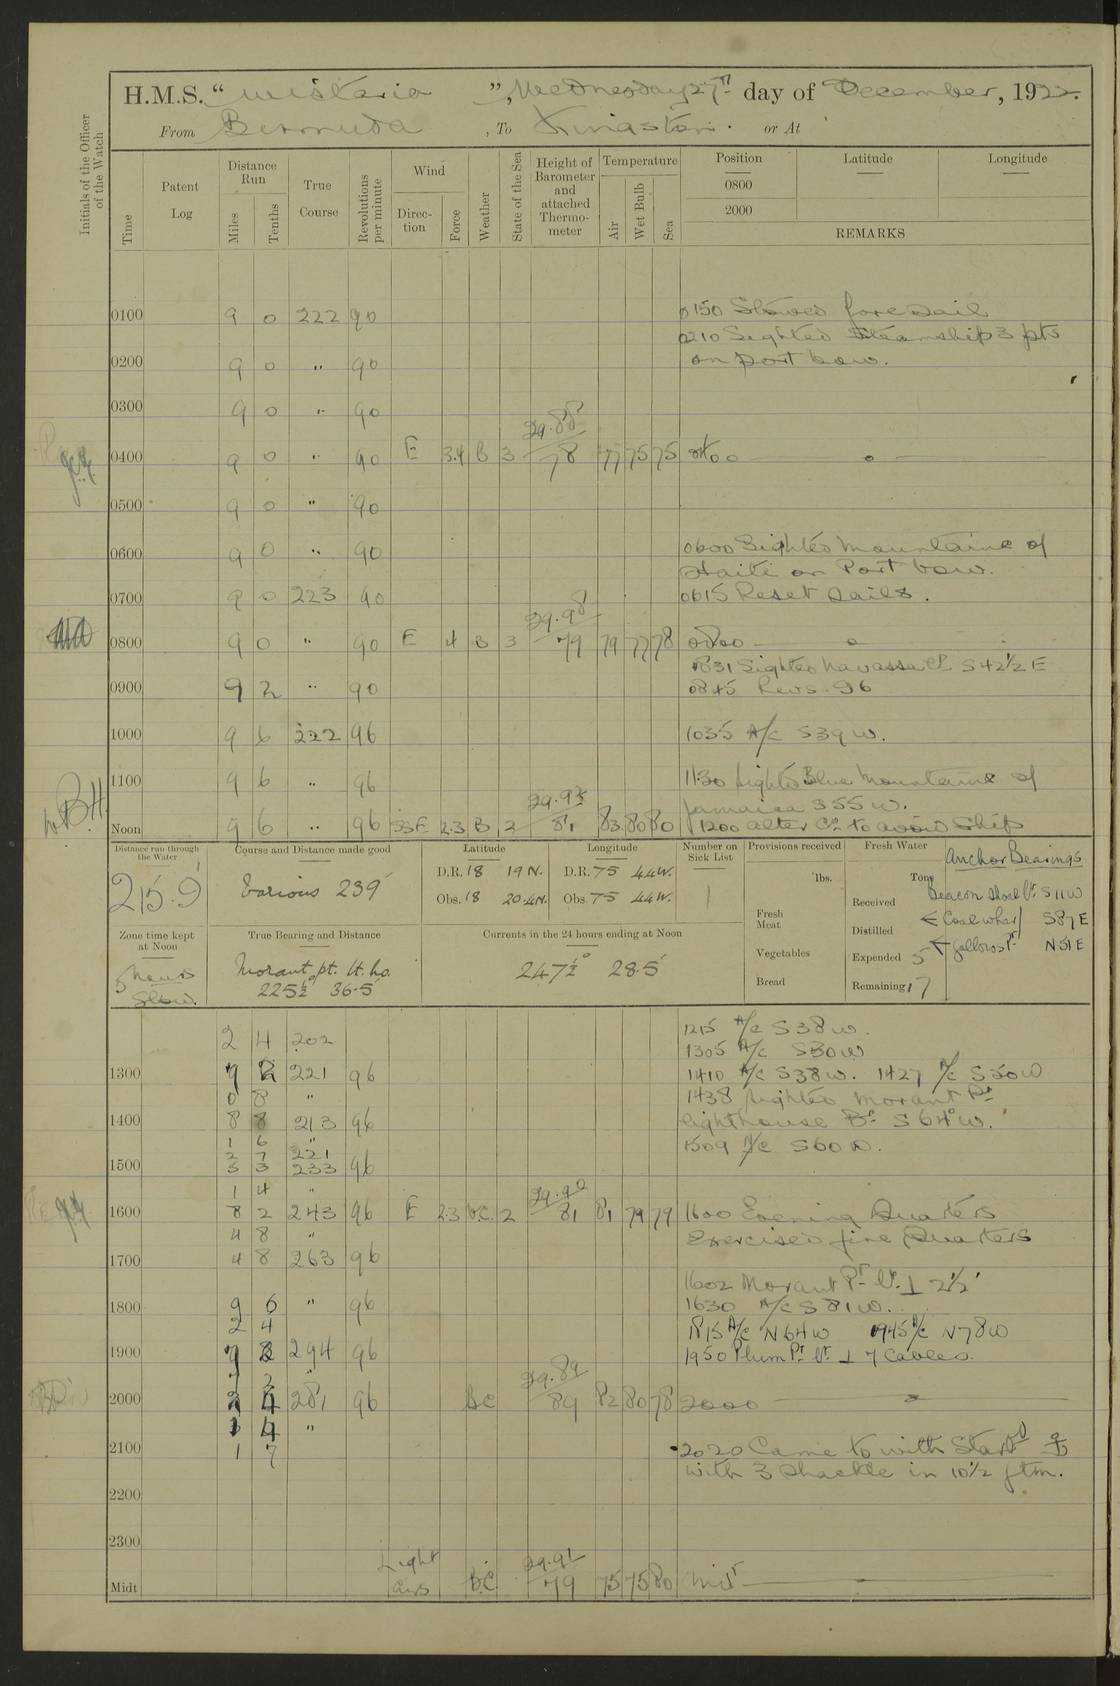 H.M.S. " Wistaria ", Wednesday 27th day of December, 1922.
From Bermuda , To Kingston . or At
Initials of the Officer of the Watch
Time
Patent Log
Distance Run
Miles
Tenths
True Course
Revolutions per minute
Wind
Direction
Force
Weather
State of the Sea
Height of Barometer and attached Thermometer
Temperature
Air
Wet Bulb
Sea
Position
0800
2000
Latitude
Longitude
REMARKS
0100 9 0 222 90
0150 Stowed foresail
0210 Sighted Steamship 3 pts
on port bow.
0200 9 0 " 90
0300 9 0 " 90
0400 9 0 " 90 E 3.4 B 3 29.88 78 77 75 75 0400
0500 9 0 " 90
0600 9 0 " 90
0600 Sighted Mountains of
Haiti on Port bow.
0700 9 0 223 90
0615 Reset Sails.
0800 9 0 " 90 E 4 B 3 29.98 79 79 77 78 0800
0831 Sighted Navassa S42½E
0900 9 2 " 90
0845 Revs. 96
1000 9 6 222 96
1035 A/c S39W.
1100 9 6 " 96
1130 Sighted Blue Mountains of
Jamaica S55W.
Noon 9 6 " 96 SSE 2.3 B 2 81 83 80 80
1200 alter Co to avoid Ship
Distance run through the Water
215.9'
Course and Distance made good
Various 239'
Latitude
D.R. 18 19 N.
Obs. 18 20.4N.
Longitude
D.R. 75 44W.
Obs. 75 44W.
Number on Sick List
1
Provisions received
lbs.
Fresh Meat
Vegetables
Bread
Fresh Water
Tons
Received
Distilled
Expended 5
Remaining 17
Anchor Bearings
Beacon Shoal Lt S11W
Coal wharf S87E
Gallows Pt N51E
Zone time kept at Noon
5 hours
Slow.
True Bearing and Distance
Morant pt. lt. ho.
225½° 36.5'
Currents in the 24 hours ending at Noon
247½° 28.5'
2 4 202
1215 A/c S38W.
1305 A/c S30W
1300 9 2 221 96
1410 A/c S38W. 1427 A/c S50W
0 8 "
1438 Sighted Morant Pt
1400 8 8 213 96
lighthouse Bg S64°W.
1 6 "
2 7 221
1509 A/c S60W.
1500 5 3 233 96
1 4 "
1600 8 2 243 96 E 2.3 B.C. 2 29.90 81 81 79 79
1600 Evening Quarters
4 8 "
Exercised fire Quarters
1700 4 8 263 96
1602 Morant Pt Lt ⊥ 2½'
1800 9 6 " 96
1630 A/c S81W.
2 4
1815 A/c N64W 1945 A/c N78W
1900 294 96
1950 Plum Pt Lt ⊥ 7 Cables.
2000 2 4 281 96 BC 29.89 89 82 80 78 2000
4 "
2100 1 7
2020 Came to with Starbd
with 3 Shackle in 10½ ftm.
2200
2300
Midt Light airs B.C. 29.91 79 75 75 80 Midt